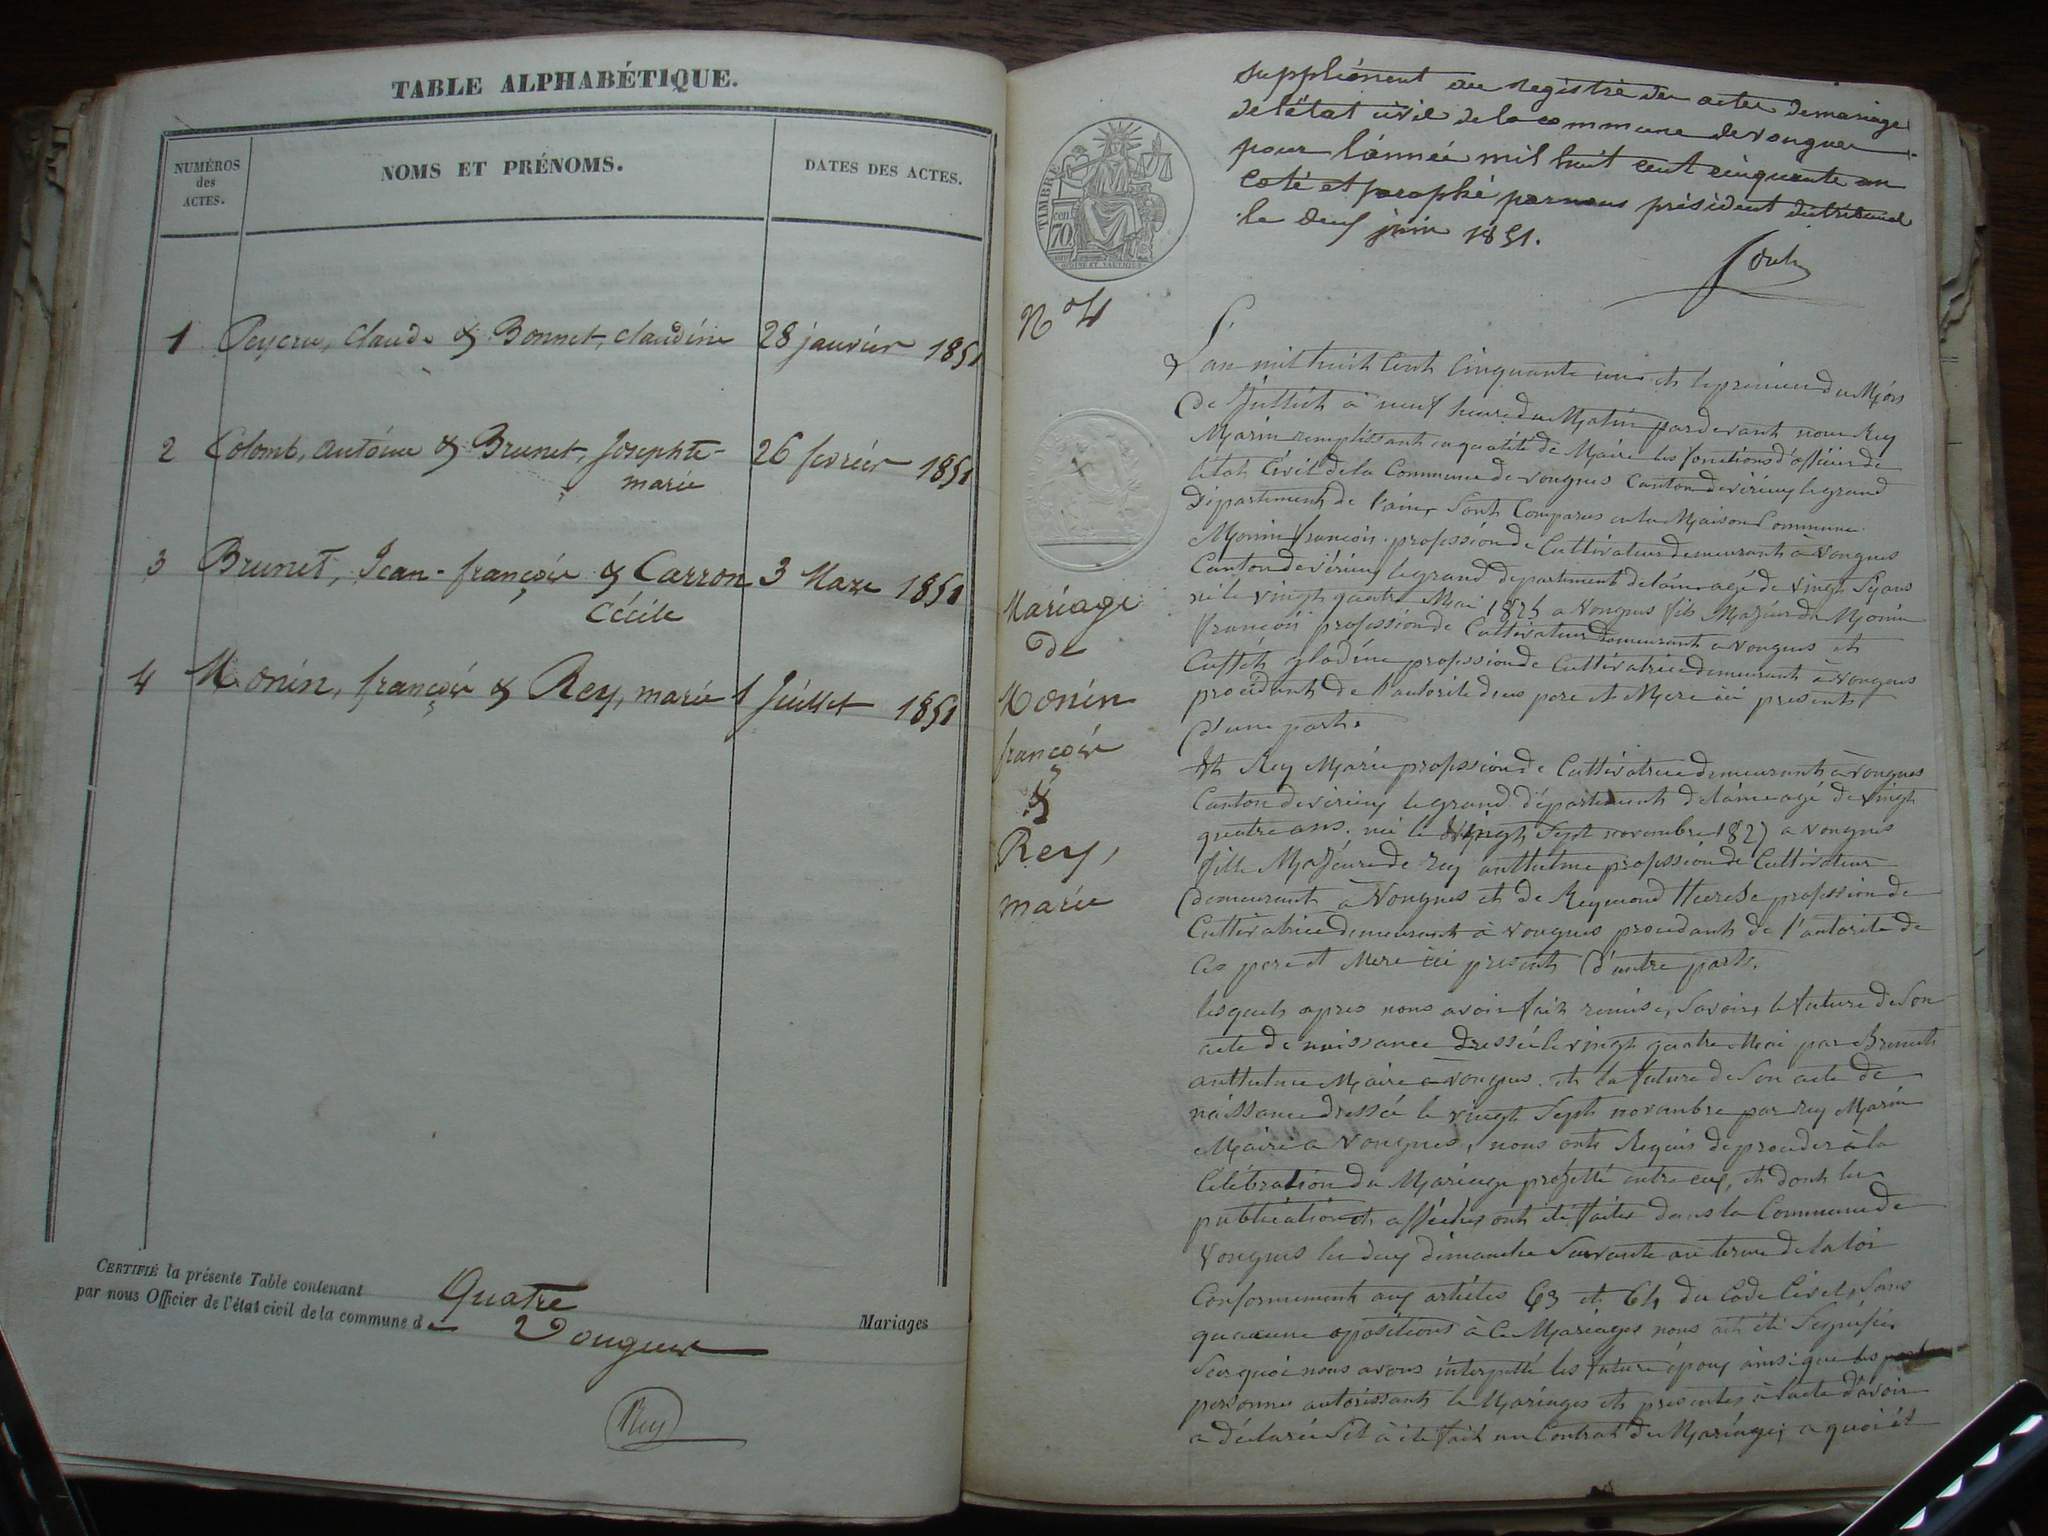 TABLE ALPHABÉTIQUE.
NUMÉROS des ACTES.
NOMS ET PRÉNOMS.
DATES DES ACTES.
1 Peycru, Claude & Bonnet, claudine 28 janvier 1851
2 Colomb, antoine & Brunet, Josephte- 26 fevrier 1851
marie
3 Brunet, Jean-françois & Carron 3 Mars 1851
Cécile
4 Monin, françois & Rey, marie 1 Juillet 1851
CERTIFIÉ la présente Table contenant Quatre Mariages
par nous Officier de l'état civil de la commune de Vongnes
Rey
supplément au registre des actes de mariage
de l'état civil de la commune de vongnes
pour l'année mil huit cent cinquante un
coté et paraphé par nous président du tribunal
le deux juin 1851.
TIMBRE
cen 70
N° 4
Mariage
de
Monin
françois
&
Rey,
marie
L'an mil huit cent cinquante un et le premier du Mois
de Juillet à neuf heure du Matin pardevant nous Rey
Marin remplissant en qualité de Maire les fonctions d'officier de
létat Civil de la Commune de vongnes Canton de virieu le grand
Département de l'ain, sont Comparus en la Maison Commune
Monin françois profession de Cultivateur demeurant à vongnes
Canton de virieu le grand département de l'ain agé de vingt six ans
né le vingt quatre Mai 1825 a vongnes fils Majeur de Monin
françois profession de Cultivateur demeurant a vongnes et
Cuffet glodine profession de Cultivatrice demeurant à vongnes
procédant de l'autorité de ses pere et Mere ici presents
d'une part.
Et Rey Marie profession de Cultivatrice demeurant à vongnes
Canton de virieu le grand département de l'ain agé de vingt
quatre ans. né le vingt sept novembre 1827 a vongnes
fille Majeure de rey anthelme profession de Cultivateur
demeurant à Vongnes et de Reymond therese profession de
Cultivatrice demeurant à vongnes procédant de l'autorité de
ces pere et Mere ici presents d'autre part.
lesquels apres nous avoir fait remise, savoir, le future de son
acte de naissance dressée le vingt quatre Mai par Brunet
anthelme Maire a vongnes. et la future de son acte de
naissance dressée le vingt sept novembre par rey Marin
Maire a Vongnes, nous ont Requis de procéder à la
Célébration du Mariage projetté entre eux, et dont les
publication et affiches ont été faites dans la Commune de
Vongnes les deux dimanche suivants au terme de la loi
Conformement aux articles 63 et 64 du Code Civil, sans
qu'aucune opositions à ce Mariages nous ait été signifiée
surquoi nous avons interpellé les future époux ainsi que les
personnes autorissant le Mariages et presentes à l'acte d'avoir
a déclarer s'il a été fait un Contrat de Mariage; a quoi il